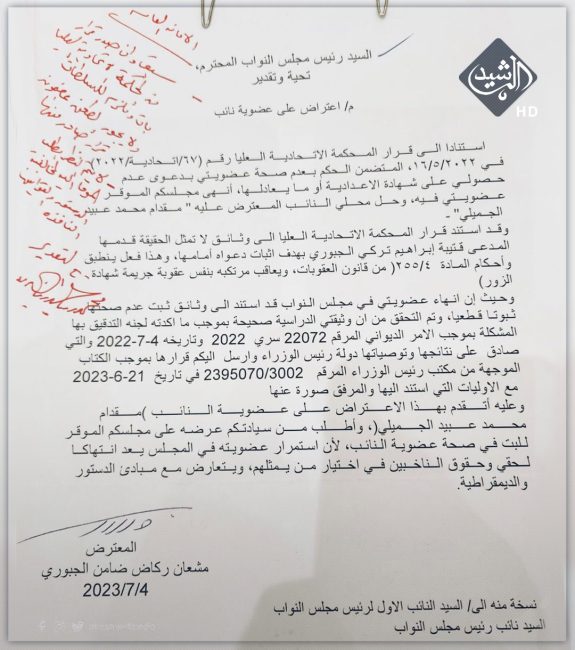 السيد رئيس مجلس النواب المحترم،
تحية وتقدير
م/ اعتراض على عضوية نائب
الرشيد
HD
استنادا الى قرار المحكمة الاتحادية العليا رقم (٦٧/اتحادية/٢٠٢٢)
في ١٦/٥/٢٠٢٢، المتضمن الحكم بعدم صحة عضويتي بدعوى عدم
حصولي على شهادة الاعدادية أو ما يعادلها، أنهى مجلسكم الموقر
عضويتي فيه، وحل محلي النائب المعترض عليه " مقدام محمد عبيد
الجميلي" -
وقد استند قرار المحكمة الاتحادية العليا الى وثائق لا تمثل الحقيقة قدمها
المدعى قتيبة إبراهيم تركي الجبوري بهدف اثبات دعواه أمامها، وهذا فعل ينطبق
وأحكام المادة ٢٥٥/٤( من قانون العقوبات، ويعاقب مرتكبه بنفس عقوبة جريمة شهادة
الزور)
وحيث إن انهاء عضويتي في مجلس النواب قد استند الى وثائق ثبت عدم صحتها
ثبوتا قطعيا، وتم التحقق من ان وثيقتي الدراسية صحيحة بموجب ما اكدته لجنه التدقيق بها
المشكلة بموجب الامر الديواني المرقم 22072 سري 2022 وتاريخه 4-7-2022 والتي
صادق على نتائجها وتوصياتها دولة رئيس الوزراء وارسل اليكم قرارها بموجب الكتاب
الموجهة من مكتب رئيس الوزراء المرقم 2395070/3002 في تاريخ 21-6-2023
مع الاوليات التي استند اليها والمرفق صورة عنها
وعليه أتقدم بهذا الاعتراض على عضوية النائب )مقدام
محمد عبيد الجميلي(، وأطلب من سيادتكم عرضه على مجلسكم الموقر
للبت في صحة عضوية النائب، لأن استمرار عضويته في المجلس يعد انتهاكا
لحقي وحقوق الناخبين في اختيار من يمثلهم، ويتعارض مع مبادئ الدستور
والديمقراطية.
المعترض
مشعان ركاض ضامن الجبوري
2023/7/4
نسخة منه الى/ السيد النائب الاول لرئيس مجلس النواب
السيد نائب رئيس مجلس النواب